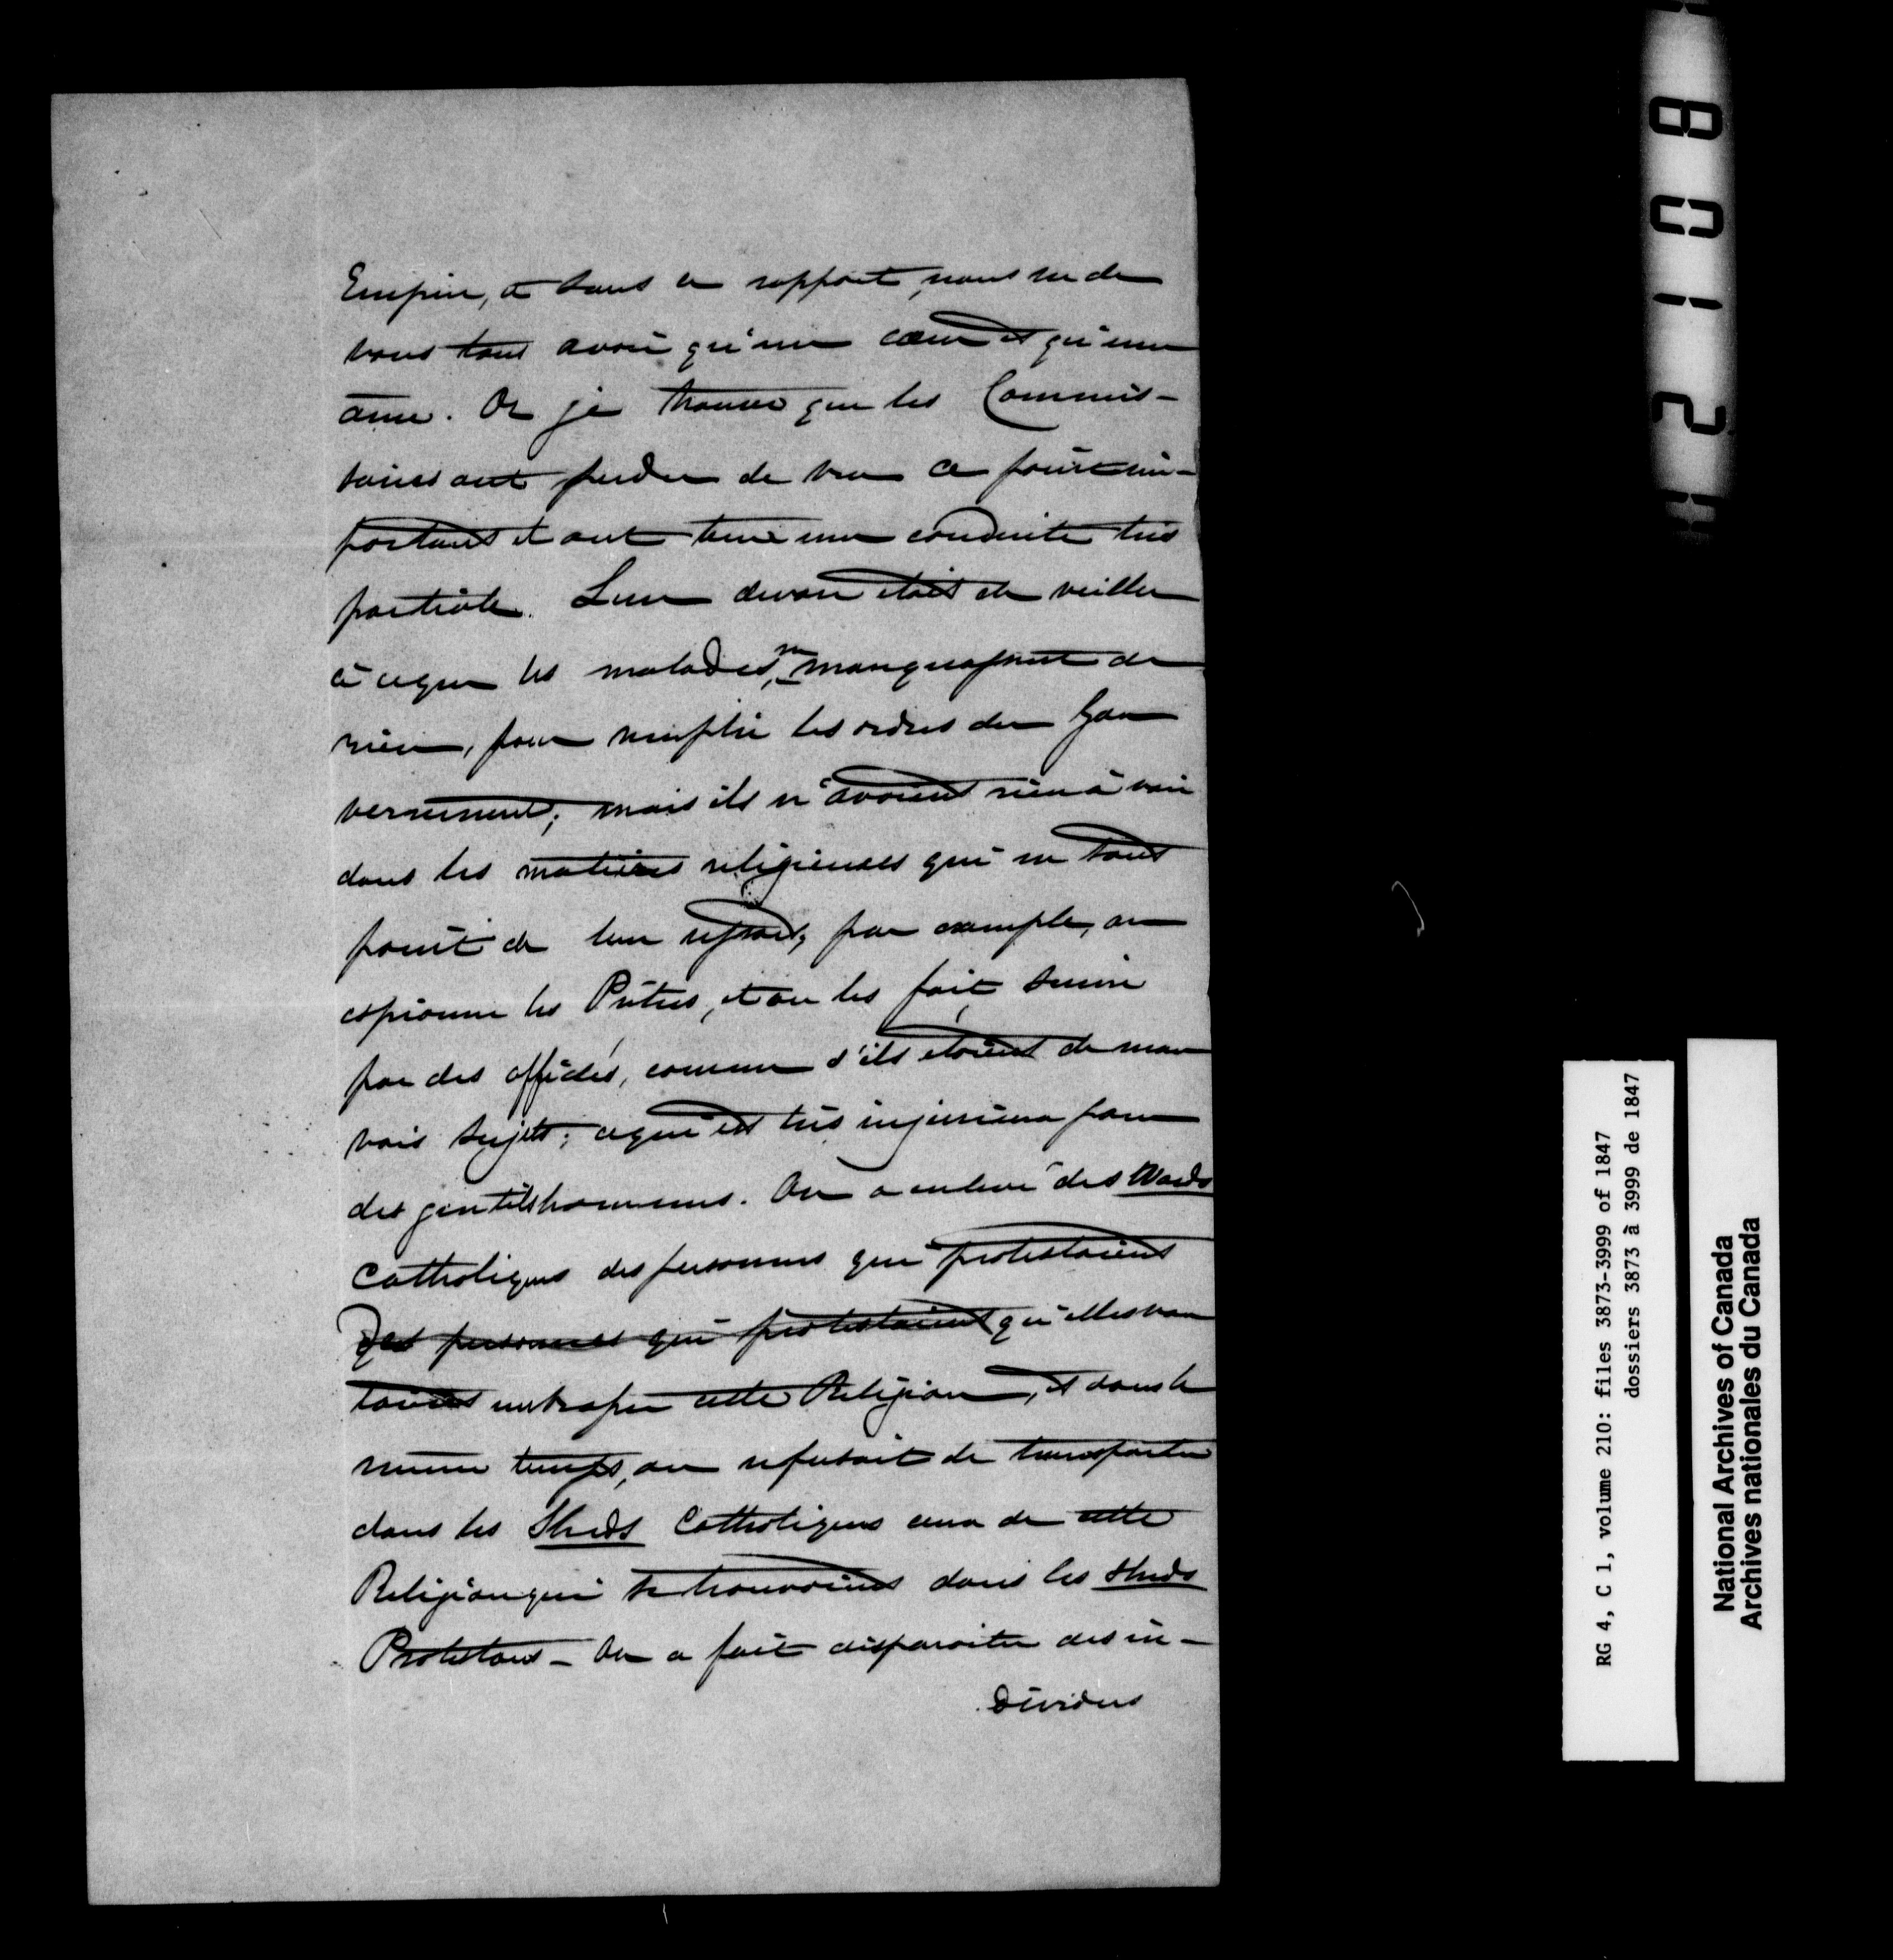 Empire, et sous ce rapport, nous ne de
vons tous avoir qu'un cœur et qu'une
âme. Or je trouve que les Commis-
saires ont perdu de vue ce point im-
portant et ont tenu une conduite très
partiale. Leur devoir étoit de veiller
à ceque les malades, ne manquassent de
rien, pour remplir les ordres du Gou
vernement; mais ils n'avoient rien à voir
dans les matières religieuses qui ne sont
point de leur ressort; par exemple, on
espionne les Prêtres, et on les fait suivre
par des affidés, comme s'ils étoient de mau
vais sujets; cequi est très injurieux pour
des gentilshommes. On a enlevé des Wards
Catholiques des personnes qui protestoient
des personnes qui protestaient qu'elles vou
loient embrasser cette Religion, et dans le
même temps, on refusoit de transporter
dans les Sheds Catholiques ceux de cette
Religion qui se trouvoient dans les Sheds
Protestans - On a fait disparoitre des in-
dividus
8012
RG 4, C 1, volume 210: files 3873-3999 of 1847
dossiers 3873 à 3999 de 1847
National Archives of Canada
Archives nationales du Canada